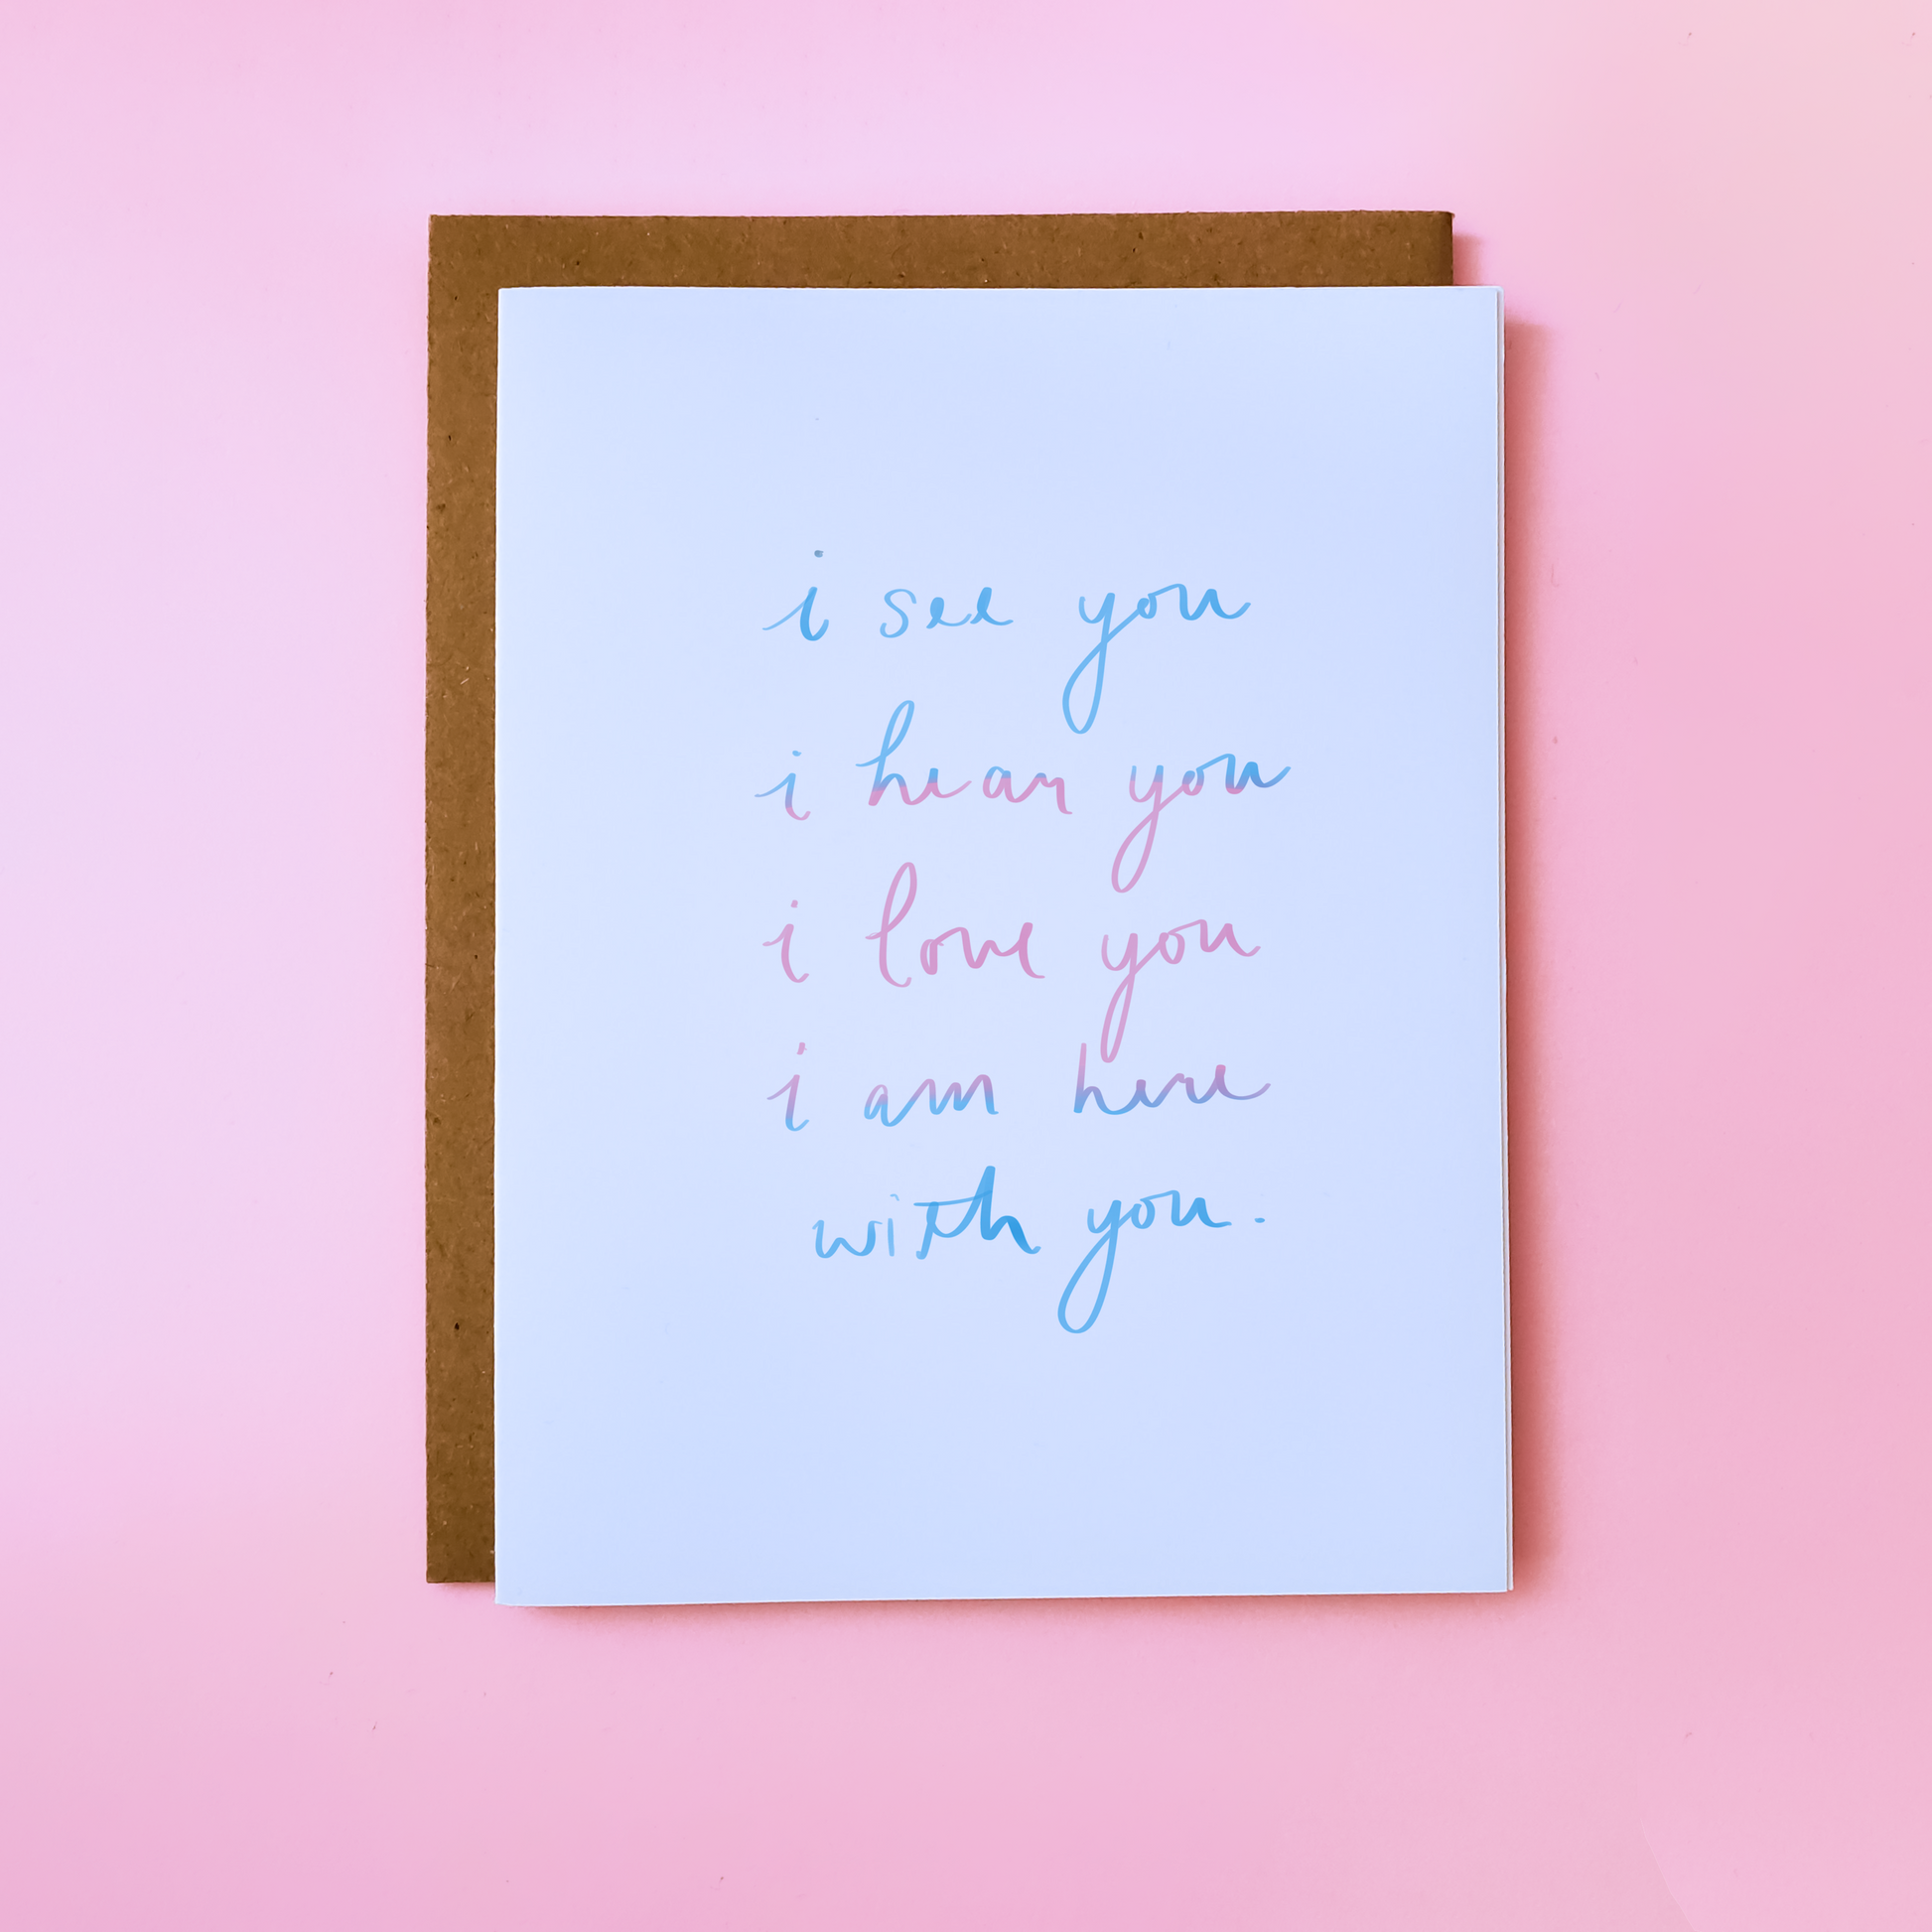 i see you
i hear you
i love you
i am here
with you.